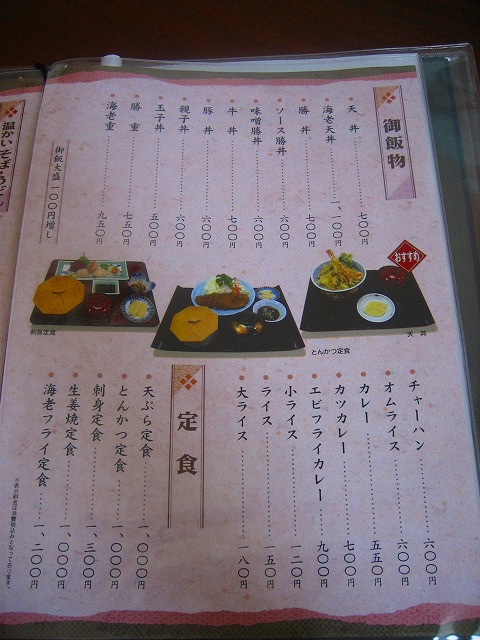 御飯物
天丼 七〇〇円
海老天丼 一、一〇〇円
勝丼 七〇〇円
ソース勝丼 六〇〇円
味噌勝丼 六〇〇円
牛丼 七〇〇円
豚丼 六〇〇円
親子丼 六〇〇円
玉子丼 五〇〇円
勝重 七五〇円
海老重 九五〇円
御飯大盛一〇〇円増し
おすすめ
天丼
とんかつ定食
刺身定食
チャーハン 六〇〇円
オムライス 六〇〇円
カレー 五五〇円
カツカレー 七〇〇円
エビフライカレー 九〇〇円
小ライス 一二〇円
ライス 一五〇円
大ライス 一八〇円
定食
天ぷら定食 一、〇〇〇円
とんかつ定食 一、〇〇〇円
刺身定食 一、三〇〇円
生姜焼定食 一、〇〇〇円
海老フライ定食 一、二〇〇円
※表示料金は消費税込みとなっております。
温かいそば・うどん